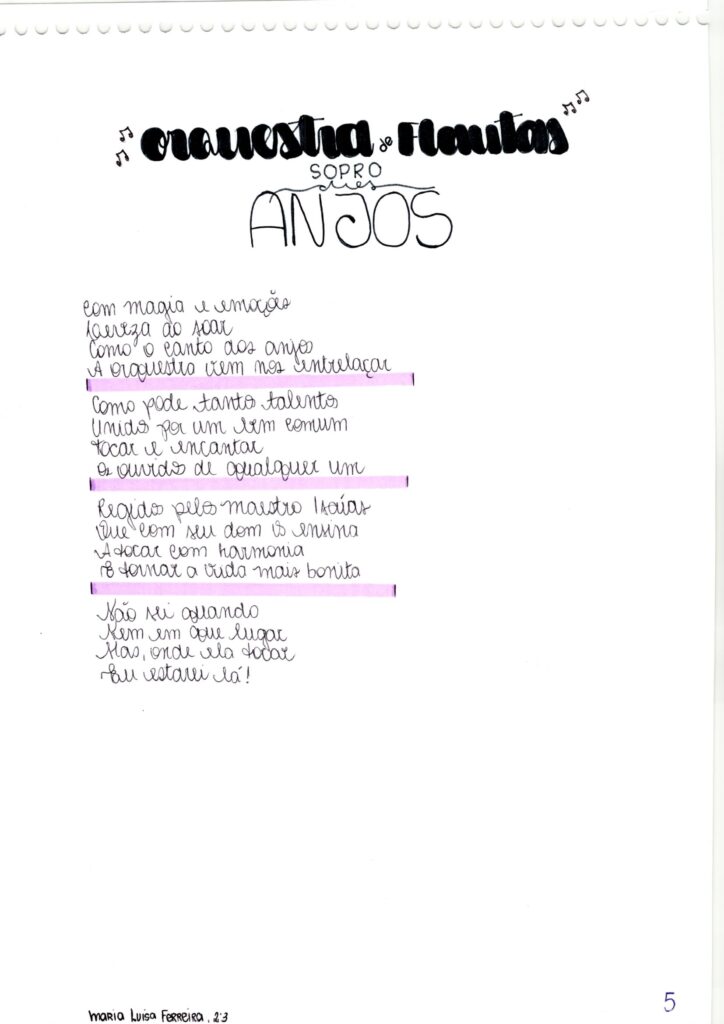 Orquestra de Flautas
SOPRO
dos
ANJOS
Com magia e emoções
Leveza ao soar
Como o canto dos anjos
A orquestra vem nos entrelaçar
Como pode tanto talento
Unido por um bem comum
Tocar e encantar
Os ouvido de qualquer um
Regido pelo maestro Isaías
Que com seu dom os ensina
A tocar com harmonia
E tornar a vida mais bonita
Não sei quando
Nem em que lugar
Mas, onde ela tocar
Eu estarei lá!
5
Maria Luisa Ferreira, 2:3